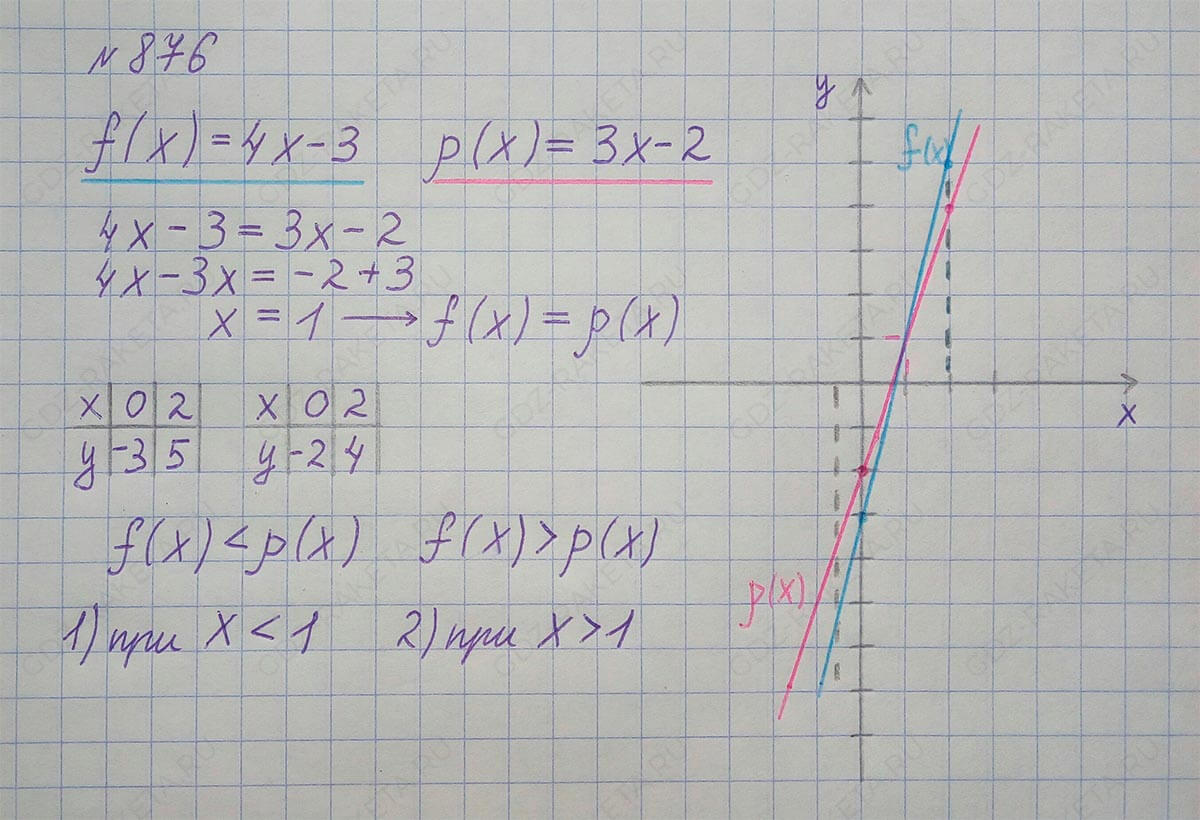 № 876
f(x) = 4x - 3 p(x) = 3x - 2
4x - 3 = 3x - 2
4x - 3x = -2 + 3
x = 1 → f(x) = p(x)
x 0 2 x 0 2
y -3 5 y -2 4
f(x) < p(x) f(x) > p(x)
1) при x < 1 2) при x > 1
y
f(x)
x
p(x)
GDZ-RAKETA.RU